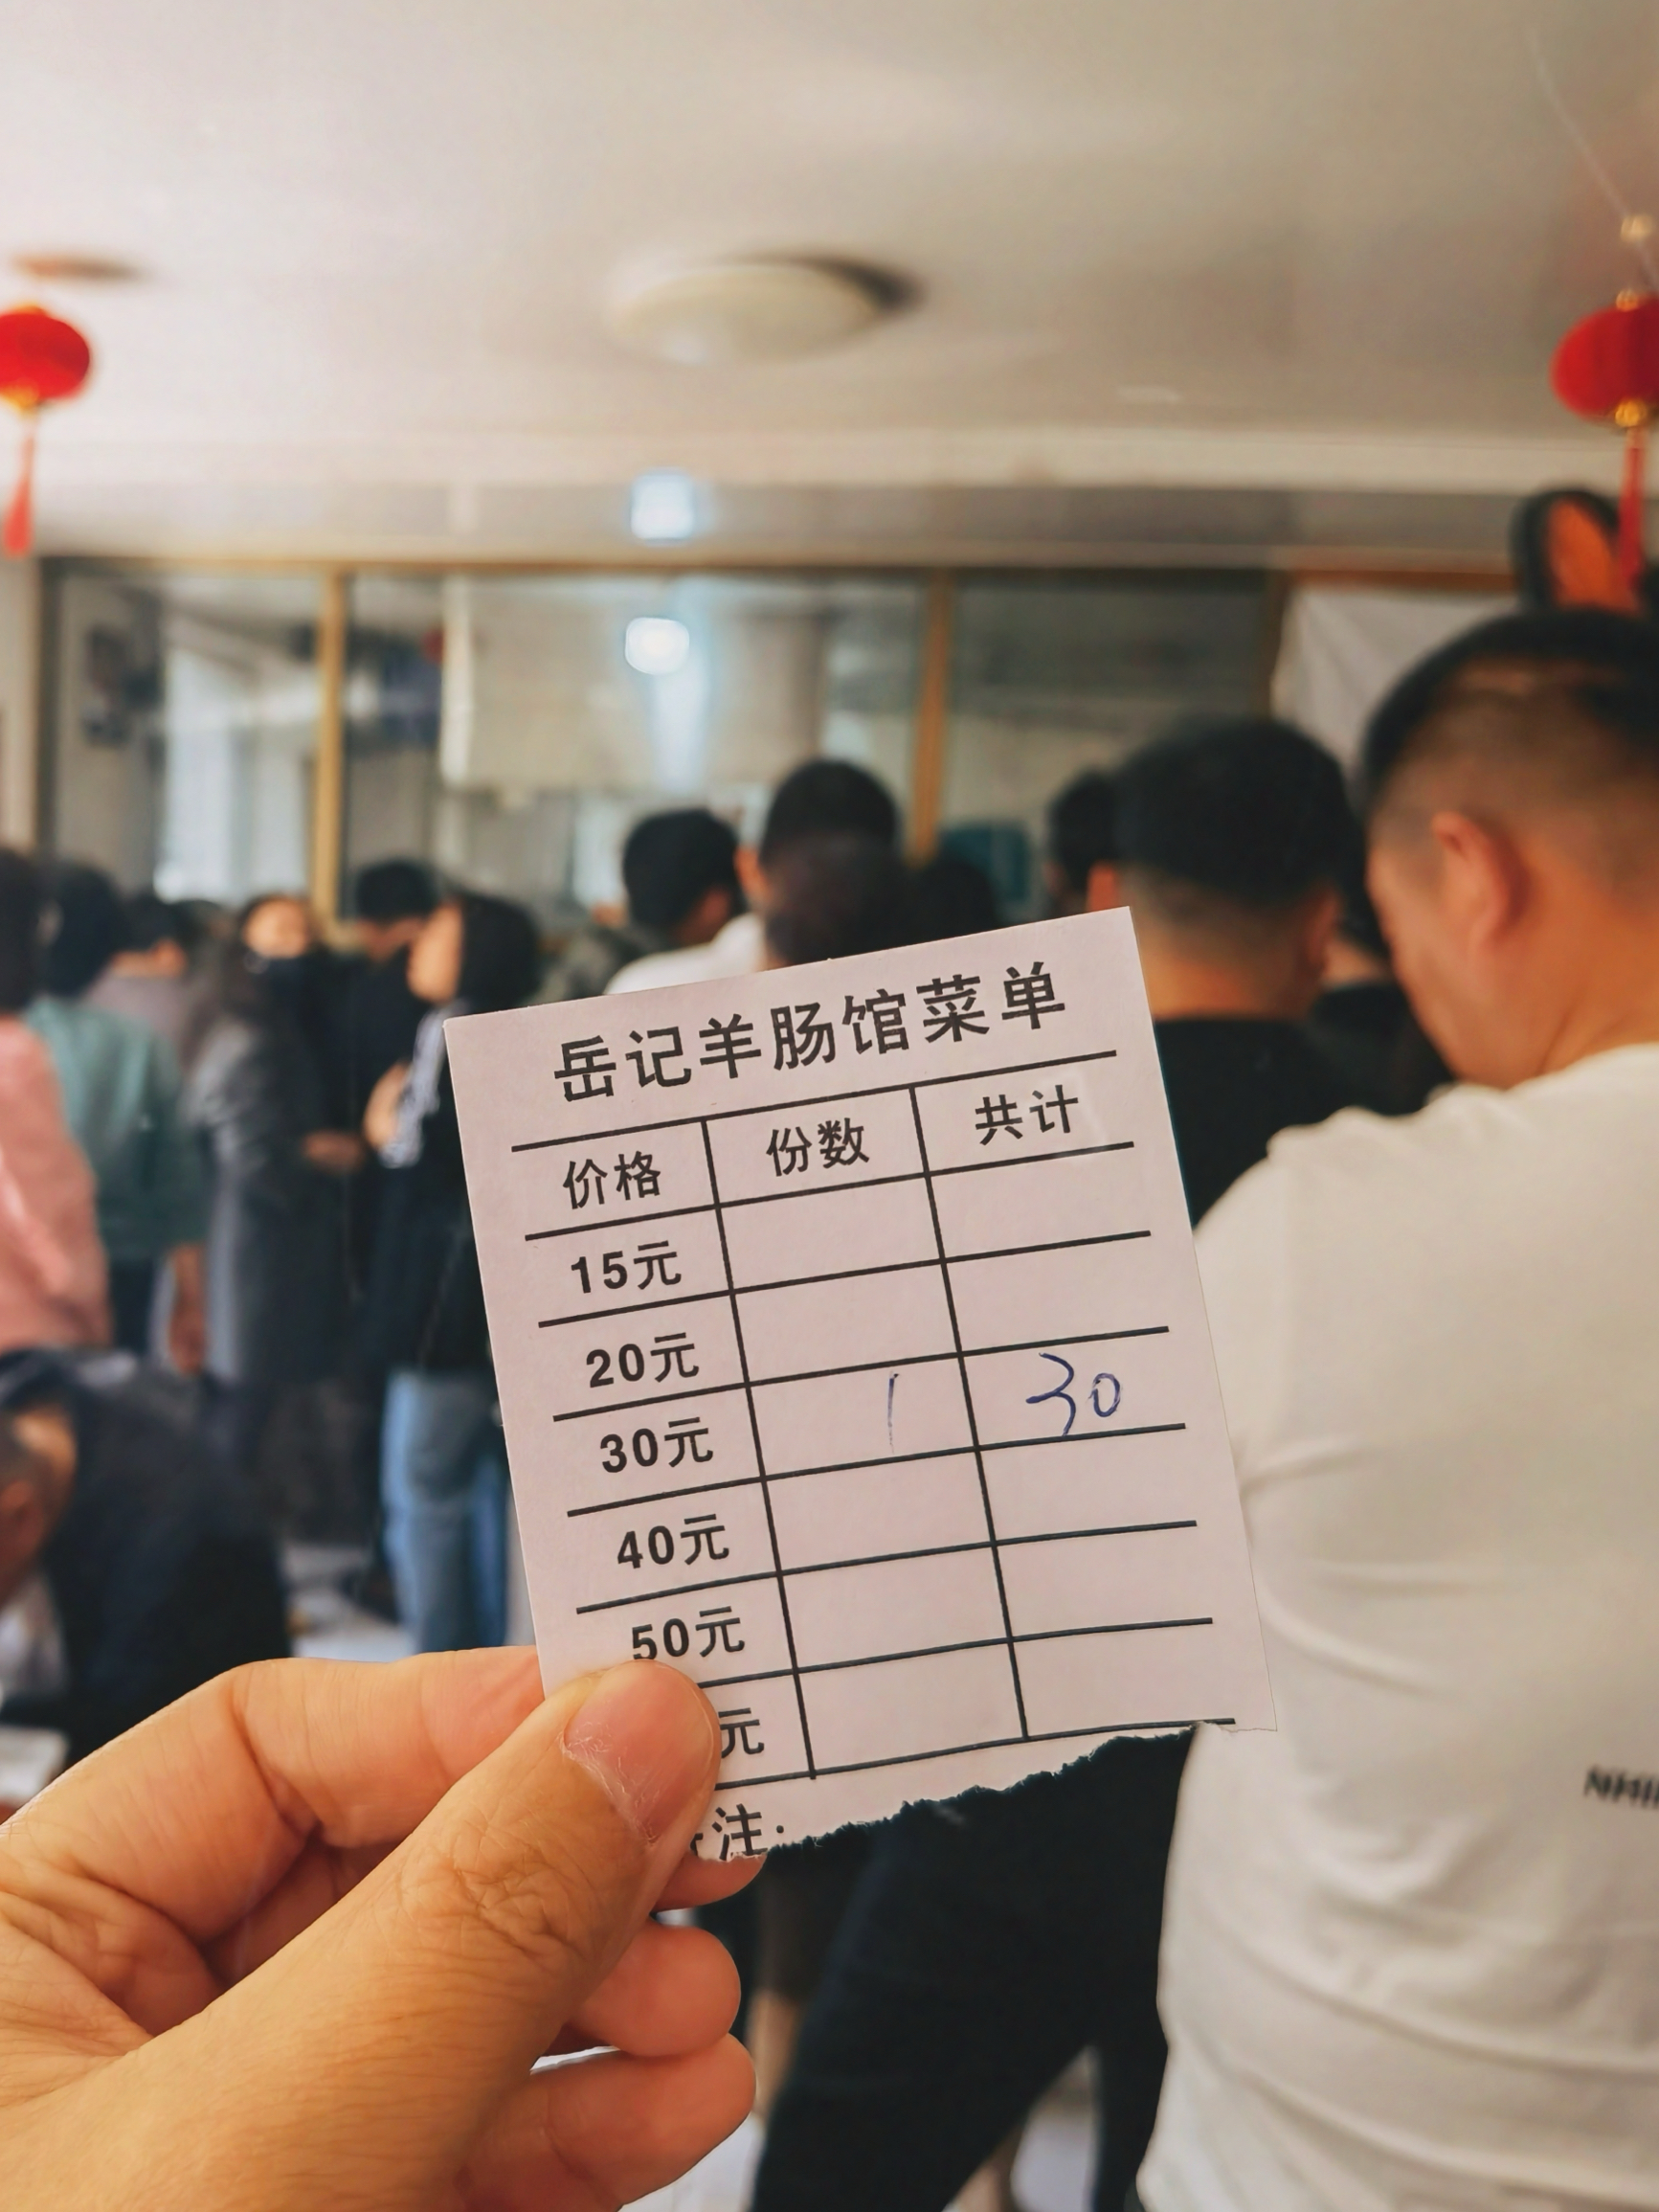 岳记羊肠馆菜单
价格 份数 共计
15元
20元
30元 1 30
40元
50元
元
注: